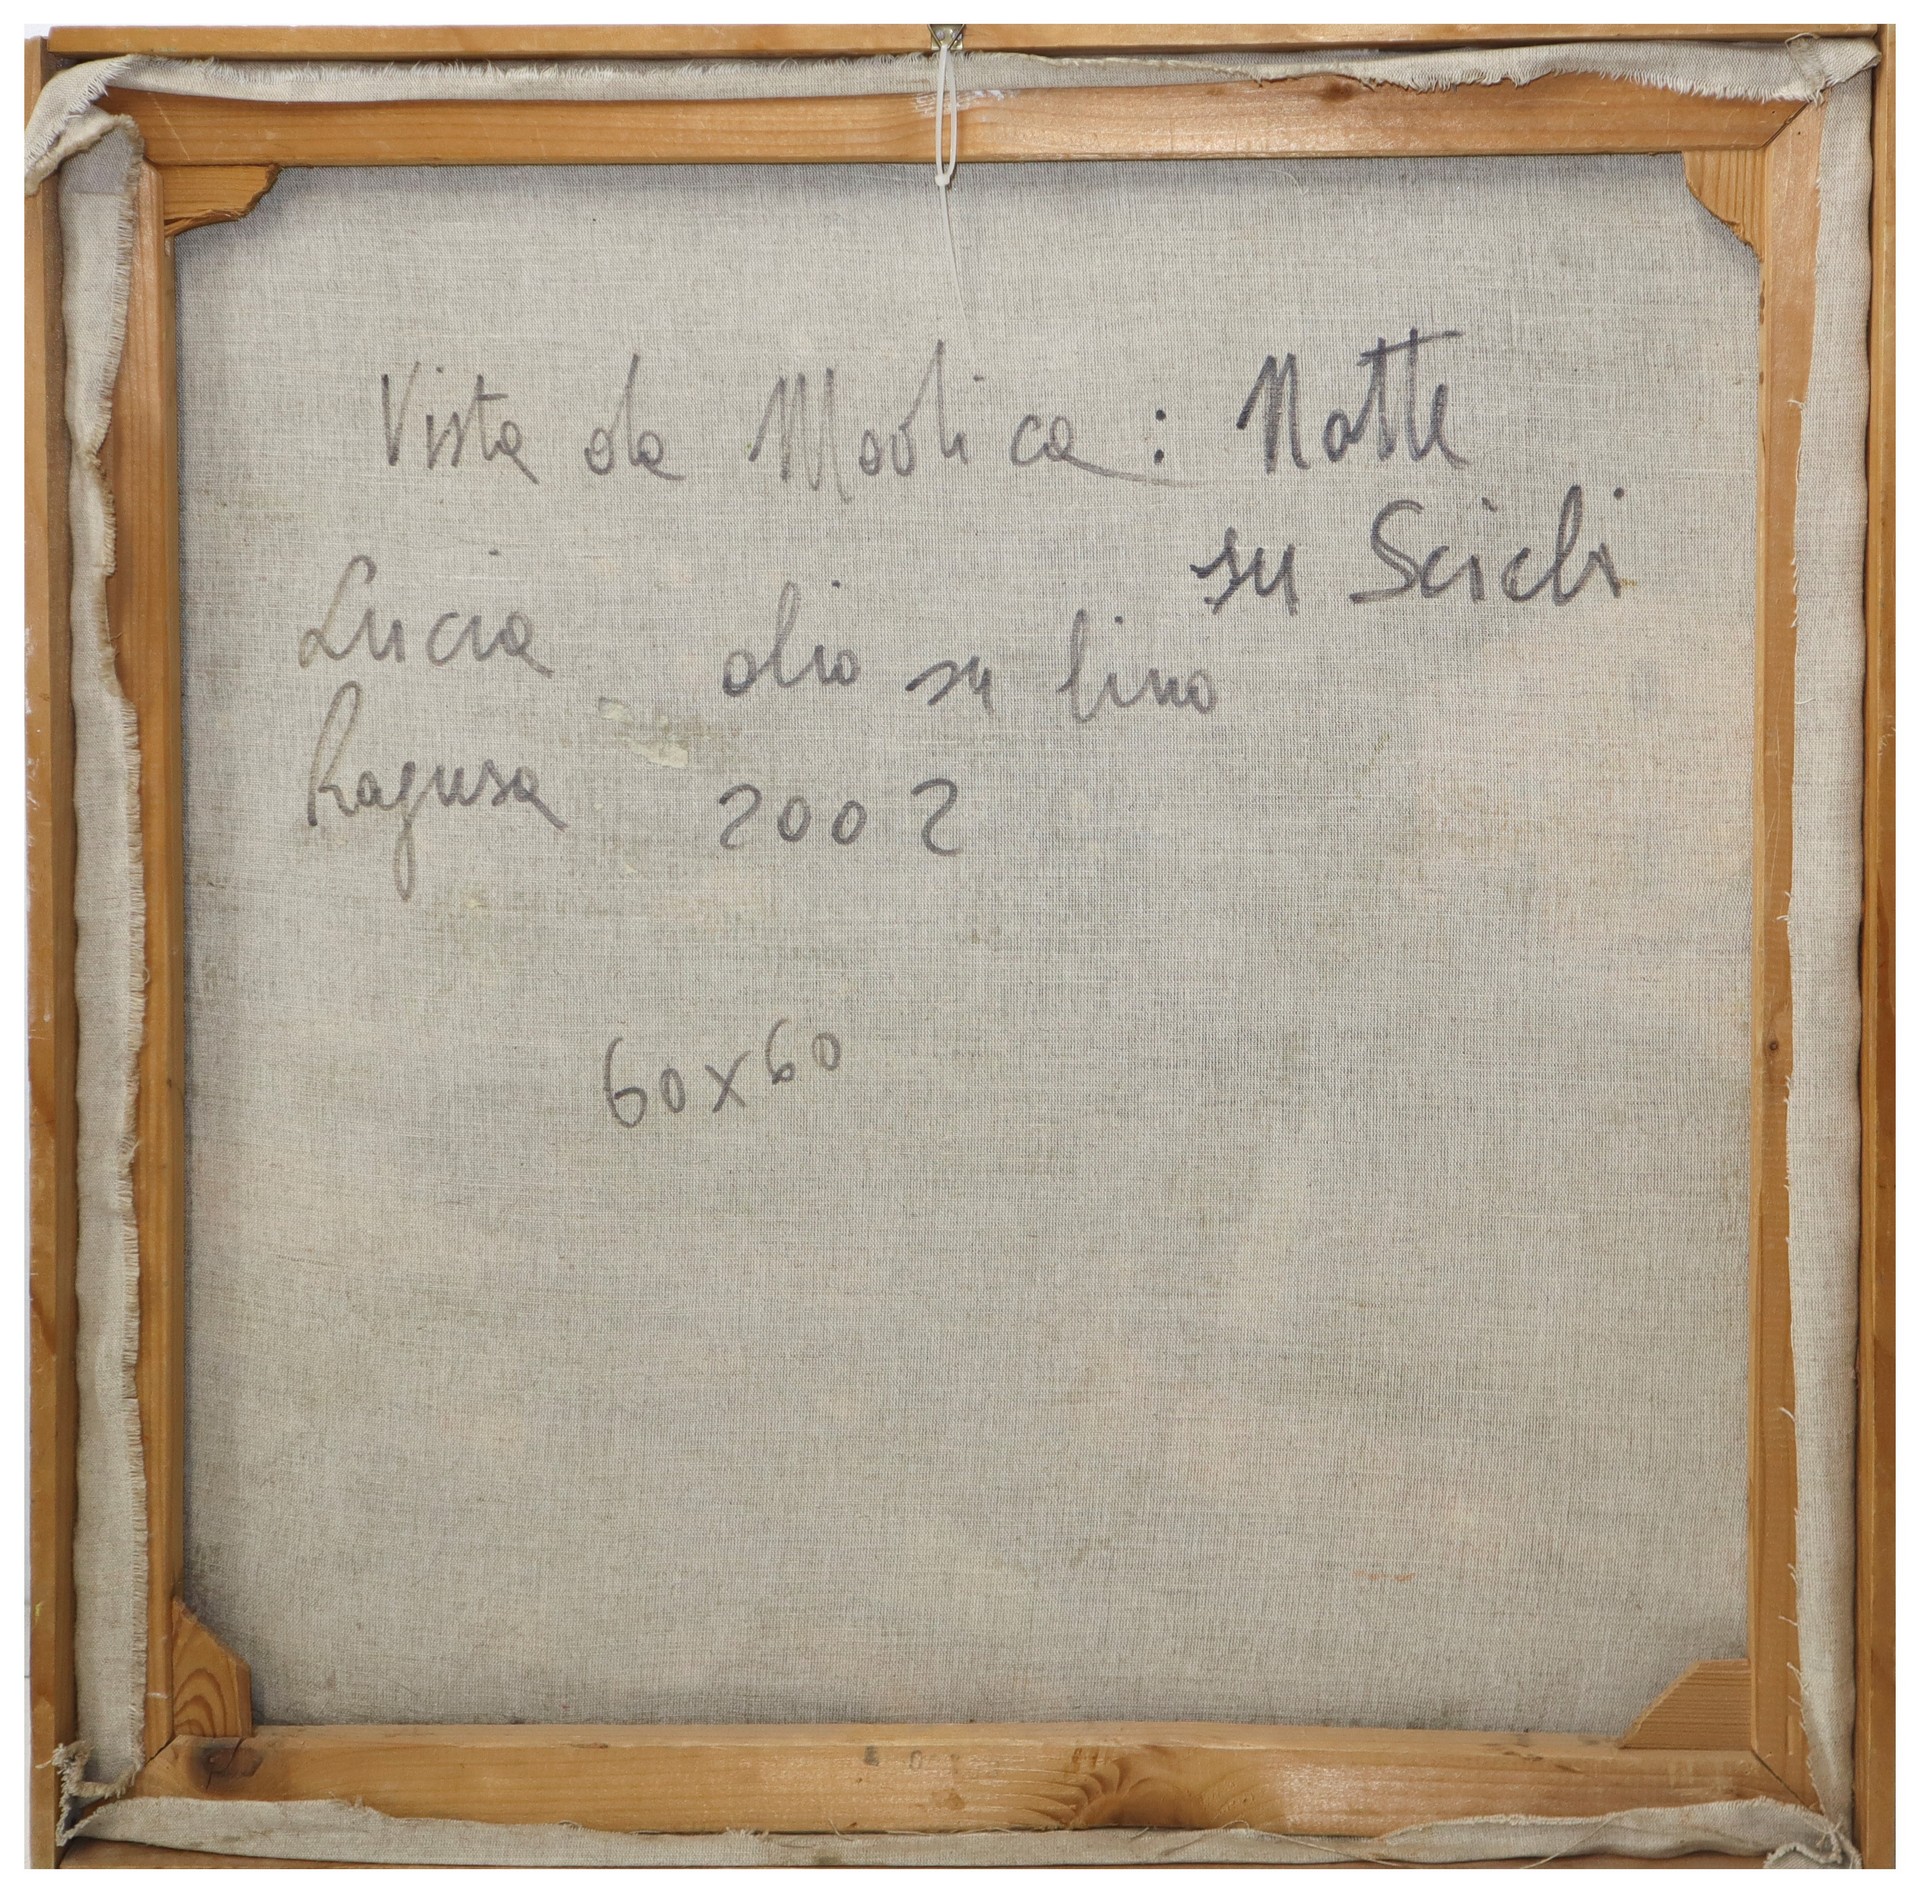 Vista da Modica : Notte
su Scicli
Lucia
Ragusa
olio su lino
2002
60x60